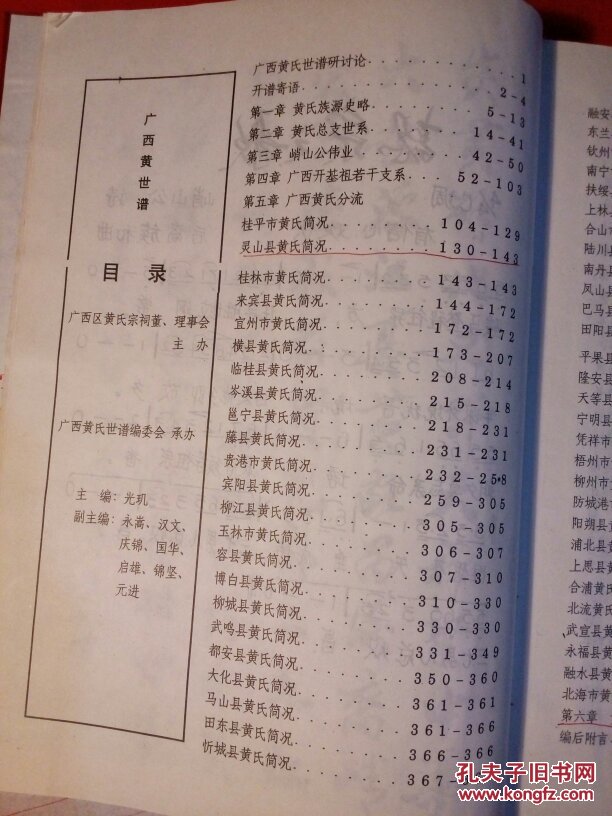 广西黄世谱
目录
广西区黄氏宗祠董、理事会
主办
广西黄氏世谱编委会 承办
主 编:光玑
副主编:永嵩、汉文、
庆锦、国华、
启雄、锦坚、
元进
广西黄氏世谱研讨论 1
开谱寄语 2-4
第一章 黄氏族源史略 5-13
第二章 黄氏总支世系 14-41
第三章 峭山公伟业 42-50
第四章 广西开基祖若干支系 52-103
第五章 广西黄氏分流
桂平市黄氏简况 104-129
灵山县黄氏简况 130-143
桂林市黄氏简况 143-143
来宾县黄氏简况 144-172
宜州市黄氏简况 172-172
横县黄氏简况 173-207
临桂县黄氏简况 208-214
岑溪县黄氏简况 215-218
邕宁县黄氏简况 218-231
藤县黄氏简况 231-231
贵港市黄氏简况 232-258
宾阳县黄氏简况 259-305
柳江县黄氏简况 305-305
玉林市黄氏简况 306-307
容县黄氏简况 307-310
博白县黄氏简况 310-330
柳城县黄氏简况 330-330
武鸣县黄氏简况 331-349
都安县黄氏简况 350-360
大化县黄氏简况 361-361
马山县黄氏简况 361-366
田东县黄氏简况 366-366
忻城县黄氏简况 367-
融安
东兰
钦州
南宁
扶绥
上林
合山市
陆川县
南丹县
凤山县
巴马县
田阳县
平果县
隆安县
天等县
宁明县
凭祥市
梧州市
柳州市
防城港
阳湖县
浦北县
上思县
合浦黄
北流黄
武宣县黄
永福县黄
融水县黄
北海市黄
第六章
编后附言
孔夫子旧书网
www.kongfz.com